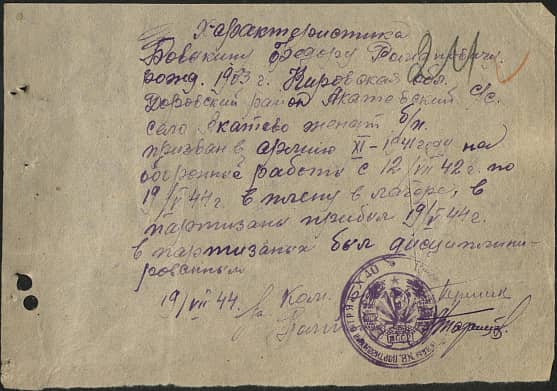 Характеристика
Бовакину Федору
рожд. 1903 г. Кировская обл.
район Акатевский с/с.
село Акатево женат б/п.
призван в армию XI-1941 году на
оборонные работы с 12/VII 42 г. по
19/V 44 г. в плену в лагере, в
партизаны прибыл 19/V 44 г.
в партизанах был дисциплини-
рованным
19/VII 44. Ком.